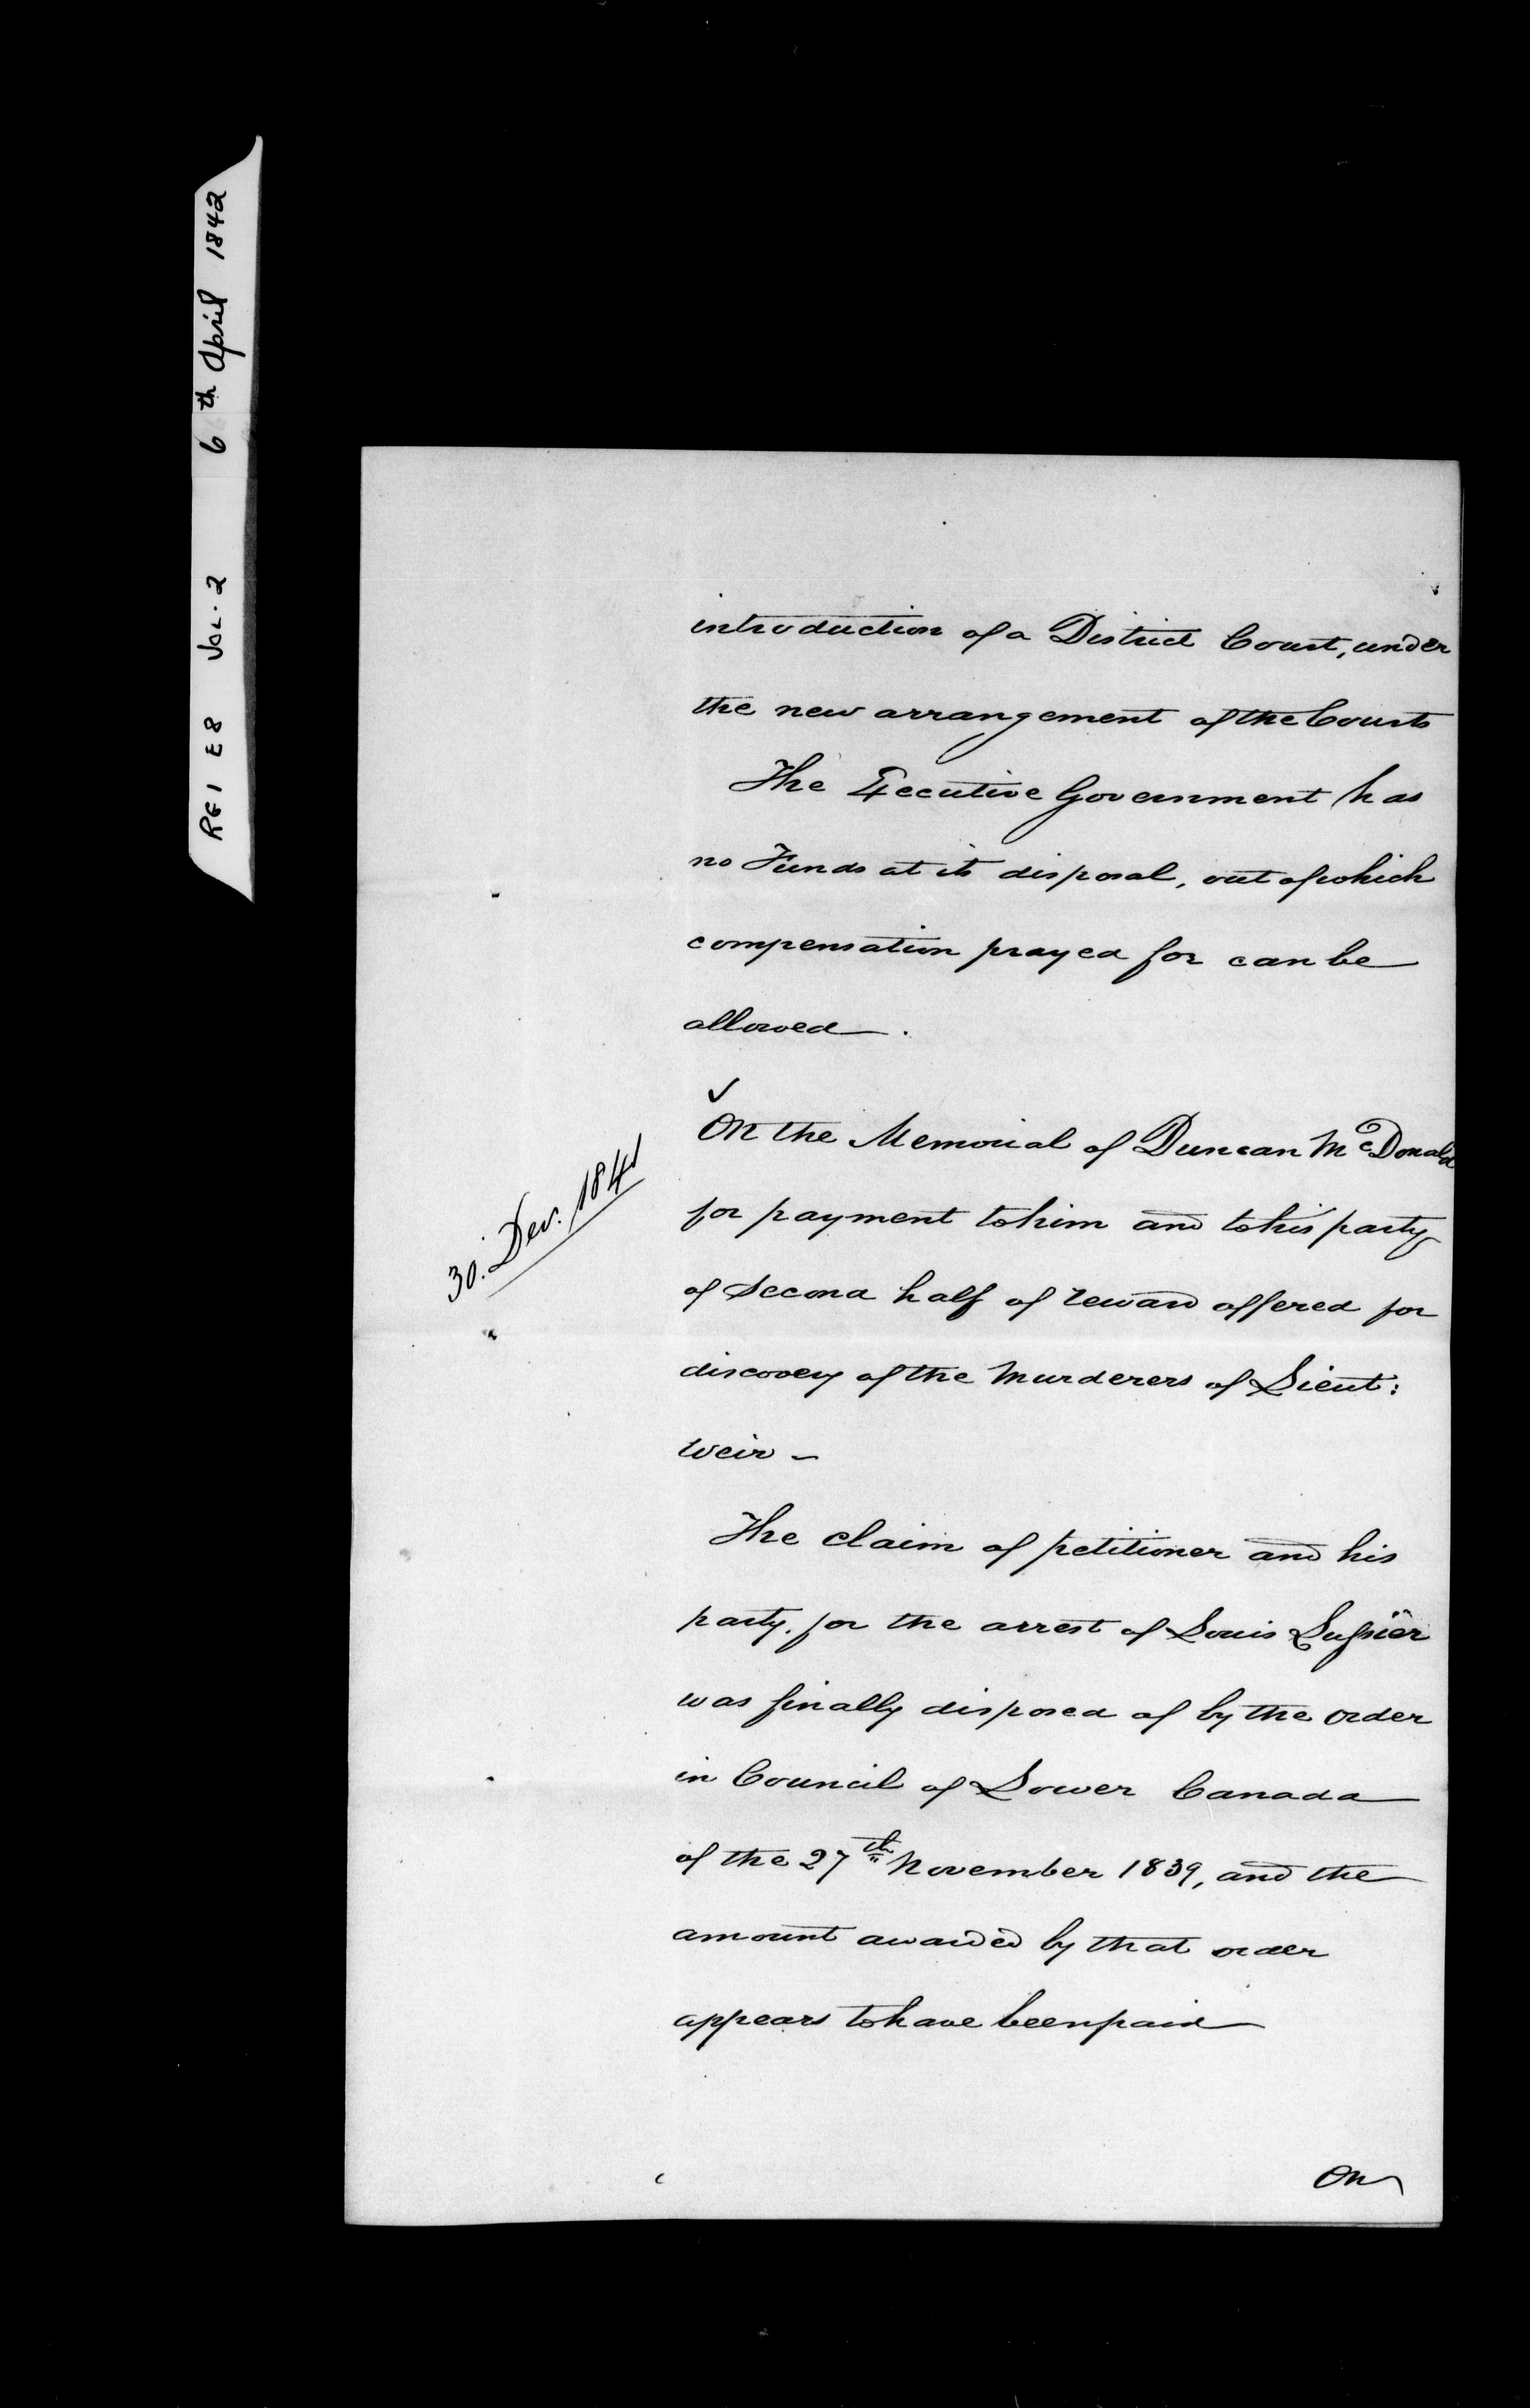 RG1 E8 Vol. 2 6th April 1842
introduction of a District Court, under
the new arrangement of the Courts
The Executive Government has
no Funds at its disposal, out of which
compensation prayed for can be
allowed.
On the Memorial of Duncan McDonald
30. Dec. 1841
for payment to him and to his party
of Second half of reward offered for
discovery of the Murderers of Lieut:
Weir –
The claim of petitioner and his
party, for the arrest of Louis Lussier
was finally disposed of by the order
in Council of Lower Canada
of the 27th November 1839, and the
amount awarded by that order
appears to have been paid
On